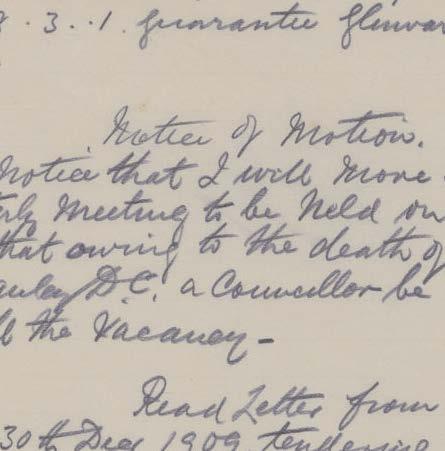 . 3 . . 1 . guarantee Glenvar
Notice of Motion.
Notice that I will move
Meeting to be held on
that owing to the death of
D.C. a Councillor be
the Vacancy -
Read Letter from
30th Decr 1909 tendering